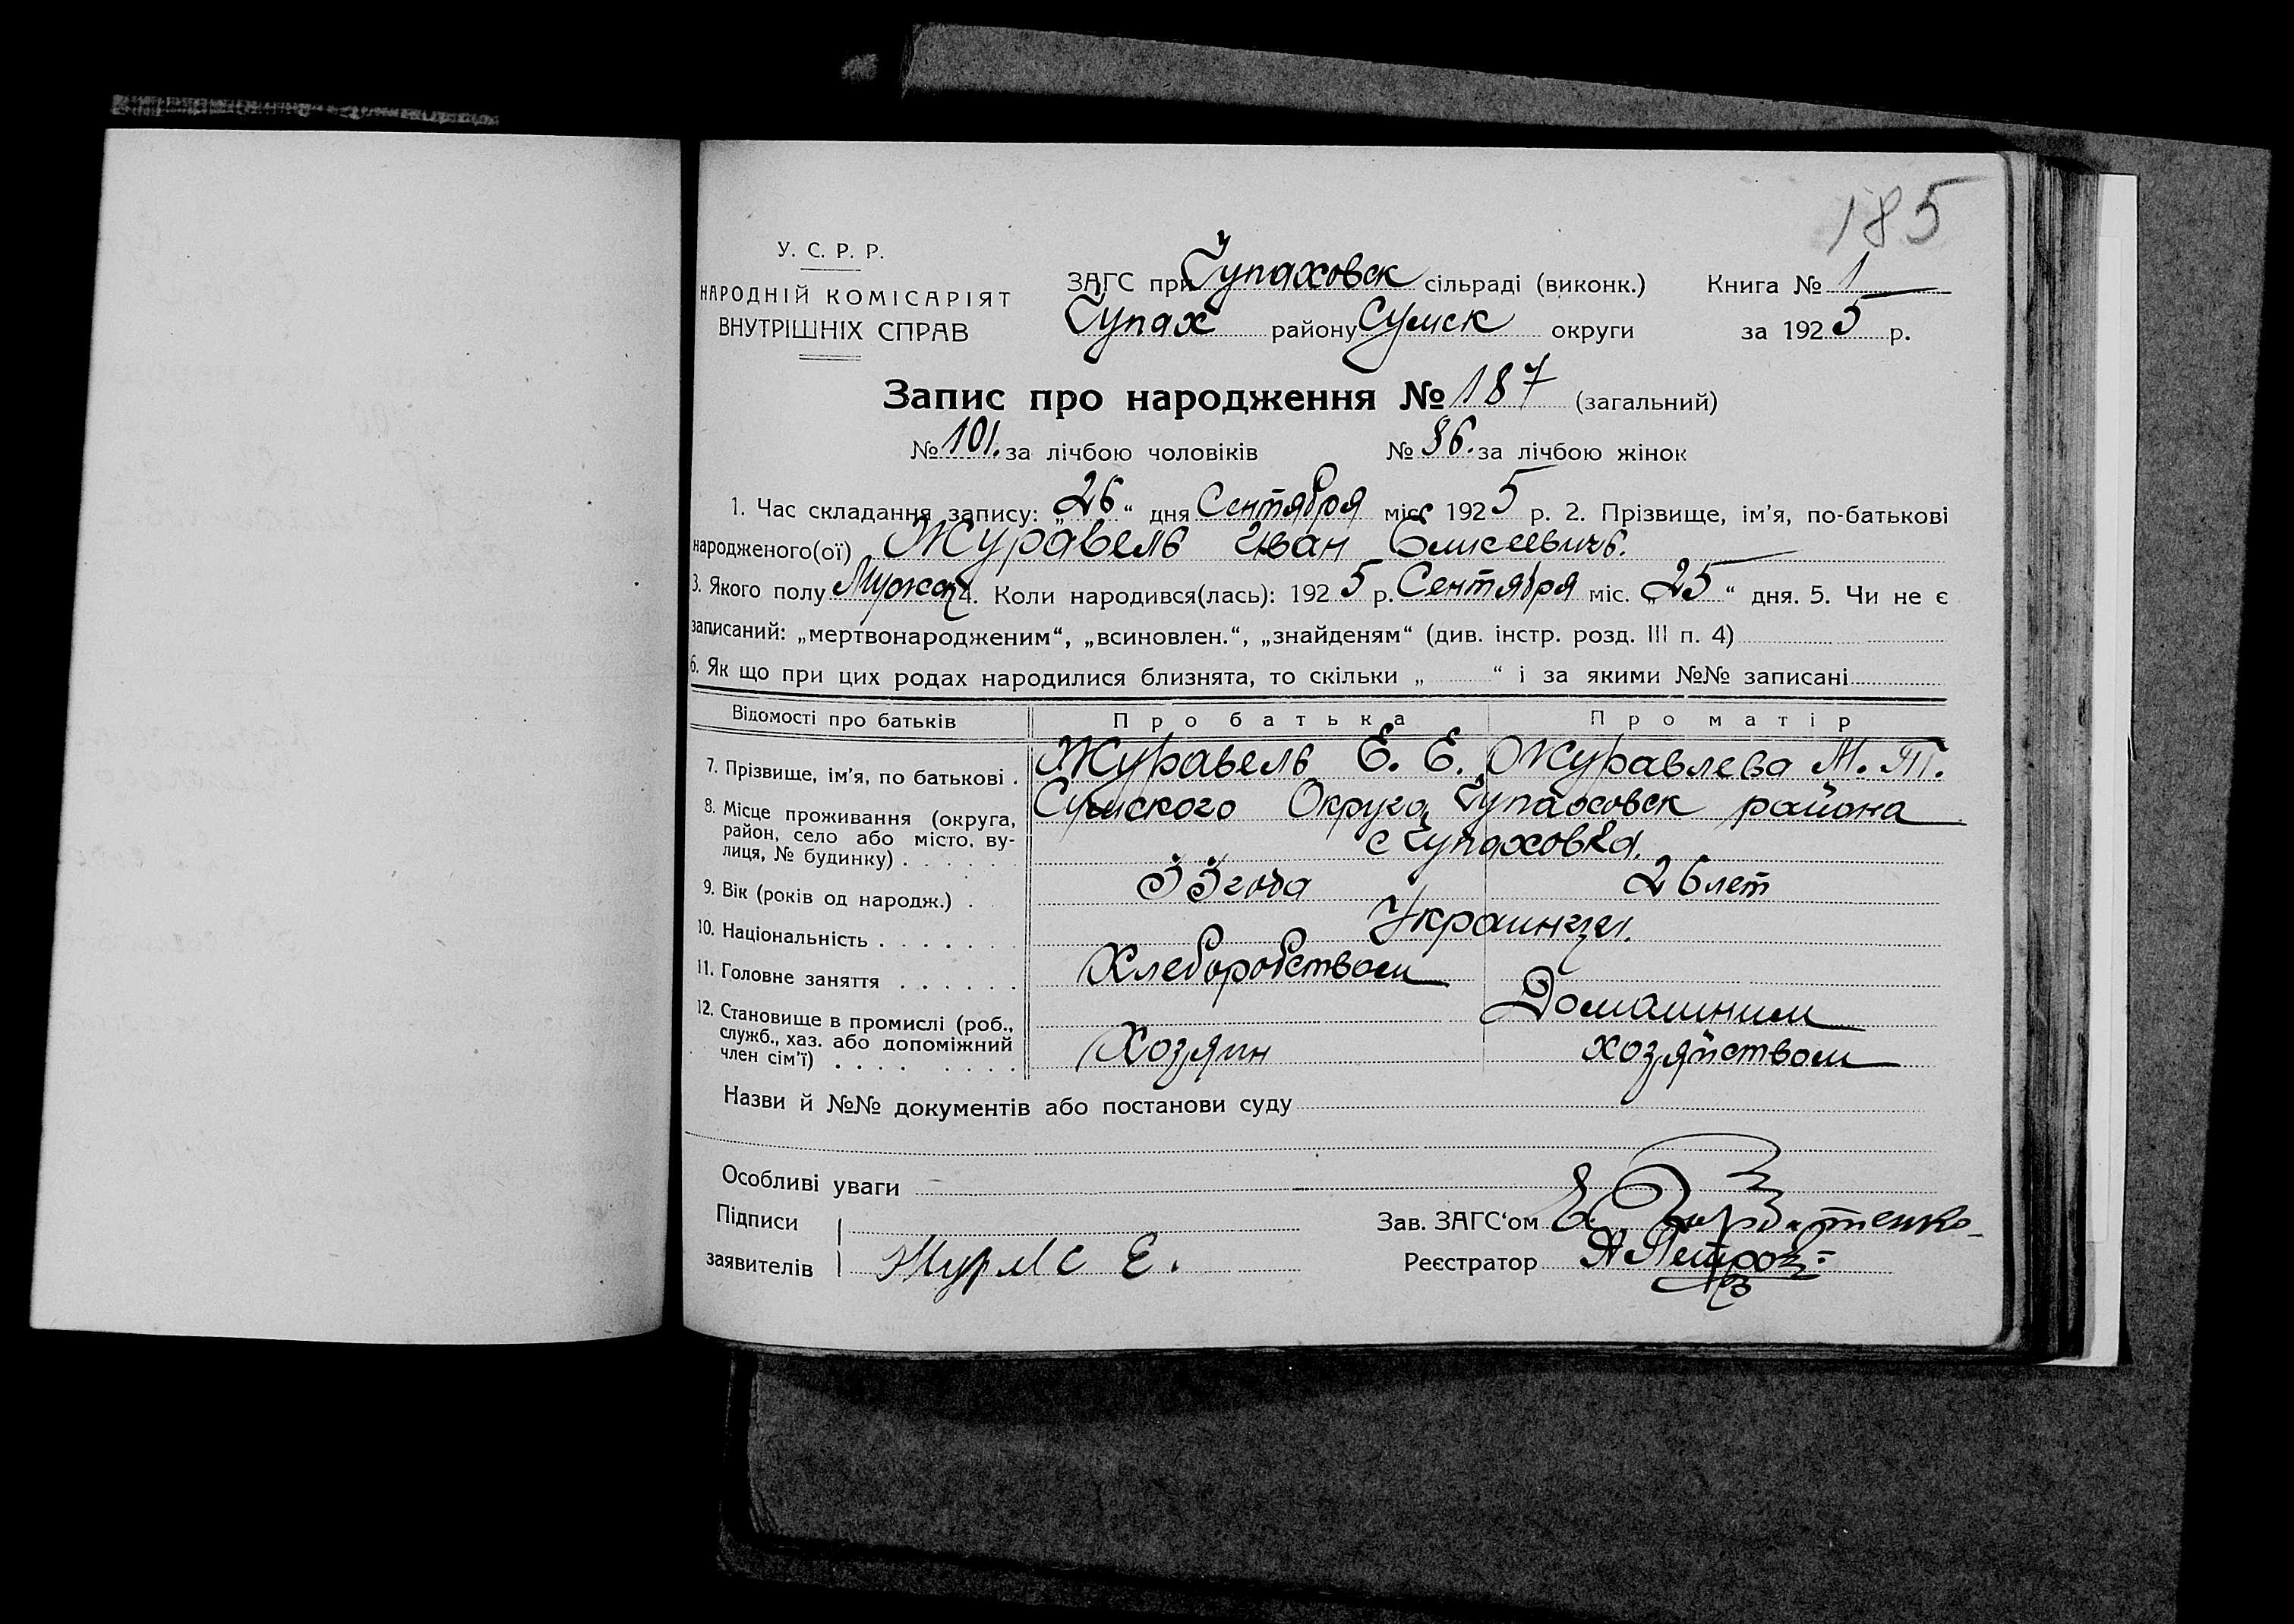 185
У. С. Р. Р.
НАРОДНІЙ КОМІСАРІЯТ
ВНУТРІШНІХ СПРАВ
ЗАГС при Чупаховск сільраді (виконк.) Книга № 1
Чупах району Сумск округи за 1925 р.
Запис про народження № 187 (загальний)
№ 101. за лічбою чоловіків № 86. за лічбою жінок
1. Час складання запису: „26“ дня Сентября міс. 1925 р. 2. Прізвище, ім’я, по-батькові
народженого(ої) Журавель Иван Елисеевичъ.
3. Якого полу Мужск 4. Коли народився(лась): 1925 р. Сентября міс. „25“ дня. 5. Чи не є
записаний: „мертвонародженим“, „всиновлен.“, „знайденям“ (див. інстр. розд. III п. 4)
6. Як що при цих родах народилися близнята, то скільки „ “ і за якими №№ записані
Відомості про батьків Про батька Про матір
7. Прізвище, ім’я, по батькові . Журавель Е. Е. Журавлева М. Т.
8. Місце проживання (округа, район, село або місто, ву-
лиця, № будинку) . . . . . . Сумского Округа Чупаховск района
с Чупаховка.
9. Вік (років од народж.) . . 33 года 26 лет
10. Національність . . . . . . . Украинцы.
11. Головне заняття . . . . . . Хлеборобством
Домашним
12. Становище в промислі (роб.,
служб., хаз. або допоміжний
член сім’ї) . . . . . . . . Хозяин хозяйством
Назви й №№ документів або постанови суду
Особливі уваги
Підписи
заявителів Е.
Зав. ЗАГС‘ом
Реєстратор А Петров